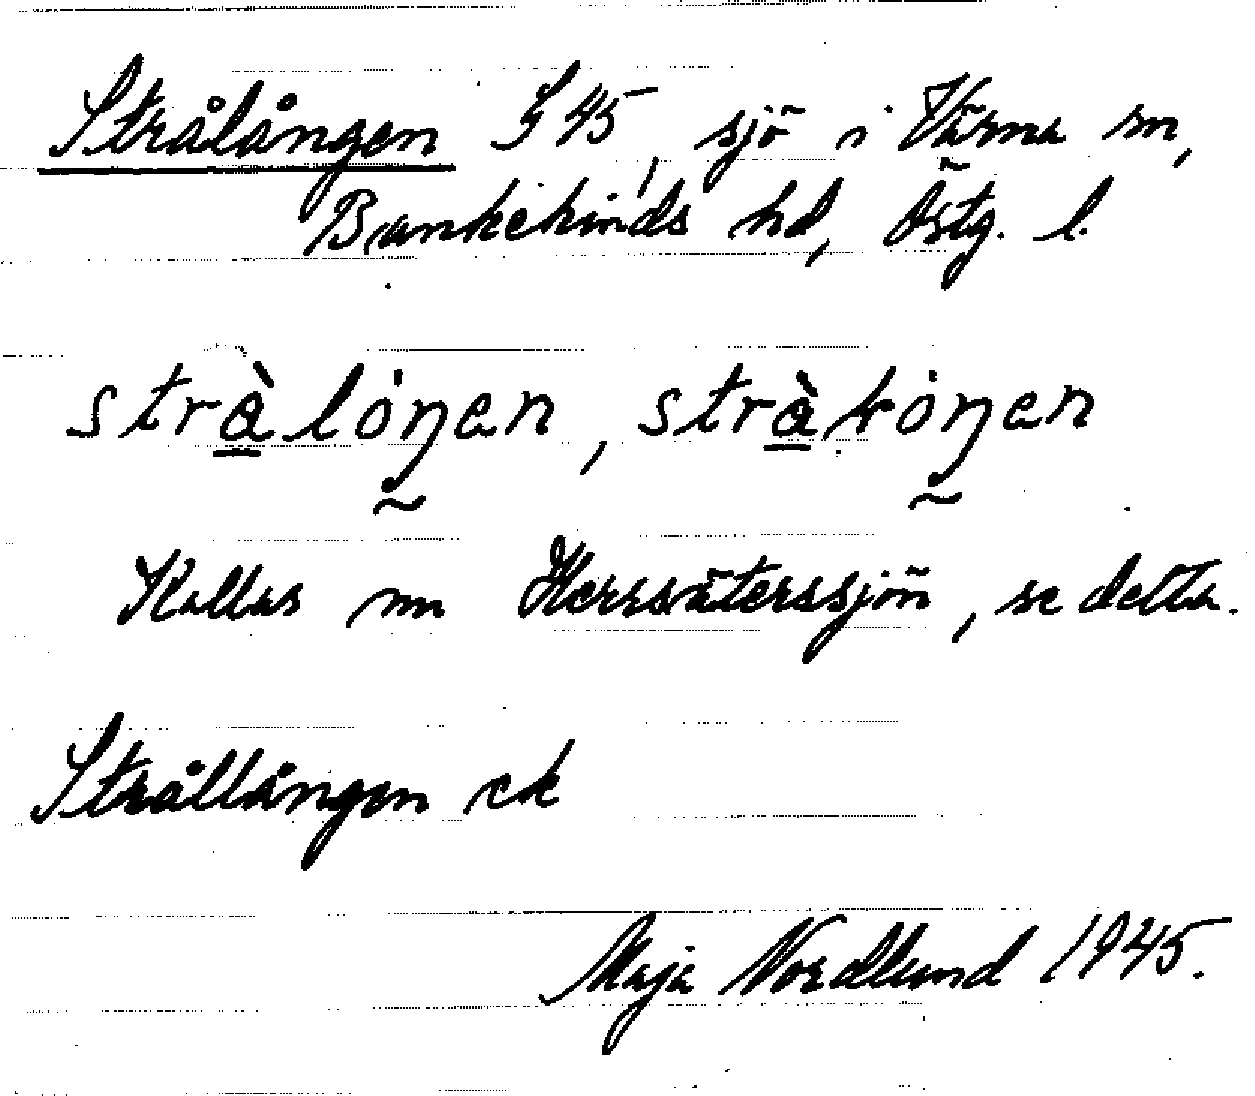 Strålången G 45, sjö i Värna sn,
Bankekinds hd, Östg. l.
stràlȯŋen, stràƚȯŋen
Kallas nu Herrsäterssjön, se detta.
Strållången ek
Maja Nordlund 1945.